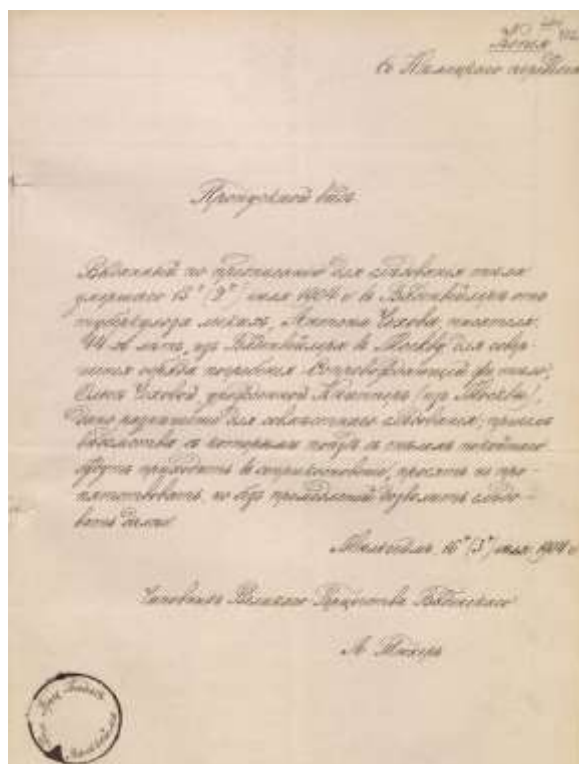 Копия
съ Нѣмецкаго перевода
Пропускной видъ
Выданный по предписанію для слѣдованія тѣла
умершаго 15го (2го) іюля 1904 г. въ Баденвейлерѣ отъ
туберкулоза легкихъ, Антона Чехова, писателя,
44 лѣтъ, изъ Баденвейлера въ Москву для совер-
шенія обряда погребенія. Сопровождающей тѣло,
Ольгѣ Чеховой урожденной Книпперъ (изъ Москвы),
дано разрѣшеніе для совмѣстнаго слѣдованія;
вѣдомства съ которыми поѣздъ съ тѣломъ покойнаго
будутъ приходить въ соприкосновеніе, просятъ не пре-
пятствовать, но безъ промедленій дозволить слѣдо-
вать далѣе.
Мюльгеймъ, 16го (3го) іюля 1904 г.
Чиновникъ Великаго Герцогства Баденскаго